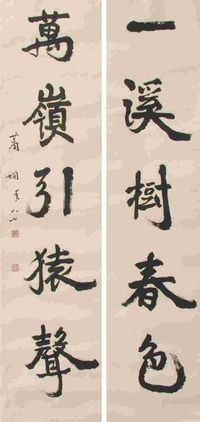 一溪樹春色
萬嶺引猿聲
蕭嫻年八七